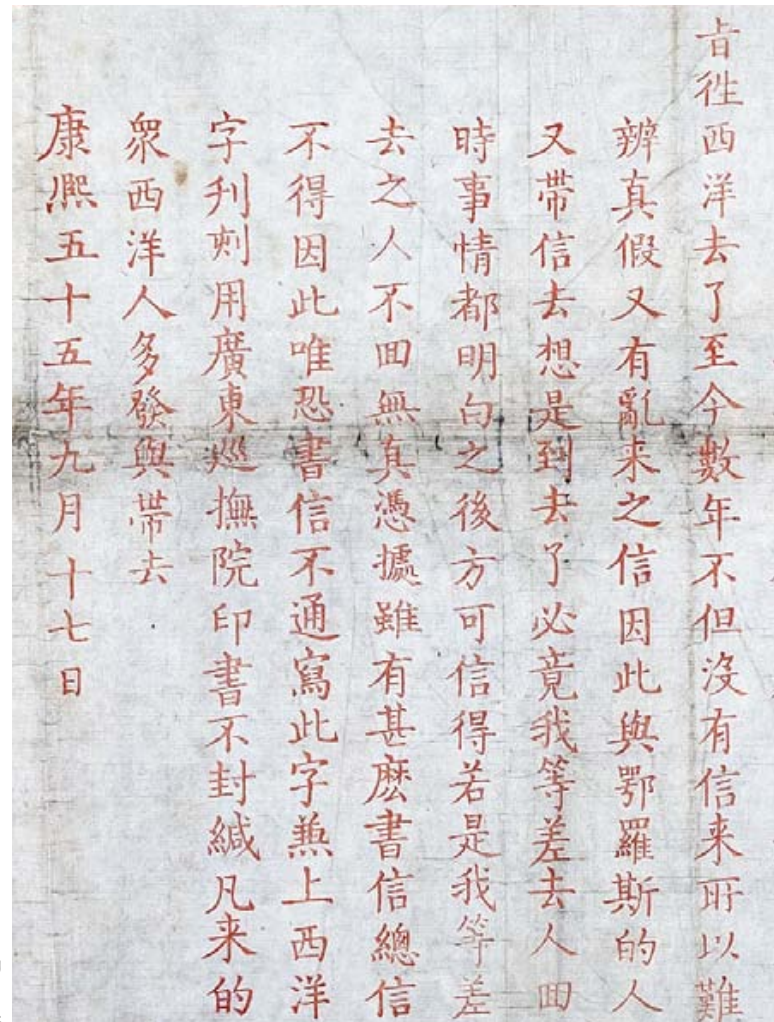 旨徃西洋去了至今數年不但沒有信来所以難
辨真假又有亂来之信因此與鄂羅斯的人
又帶信去想是到去了必竟我等差去人回
時事情都明白之後方可信得若是我等差
去之人不回無真憑據雖有甚麽書信總信
不得因此唯恐書信不通寫此字兼上西洋
字刋刻用廣東巡撫院印書不封緘凡来的
衆西洋人多發與帶去
康熙五十五年九月十七日